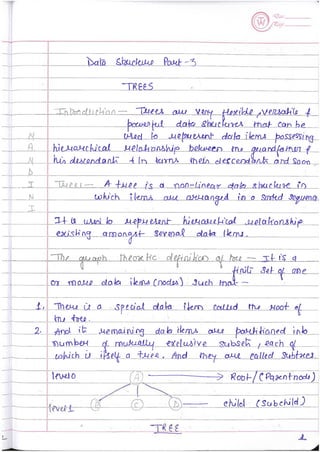 Data Structure Part - 3
TREES
Introduction — Trees are very flexible, versatile &
powerful data structures that can be
used to represent data items possessing
hierarchical relationship between the grandfather &
his descendants & in turns their descendants and soon.
Trees :— A tree is a non-linear data structure in
which items are arranged in a sorted sequence
It is used to represent hierarchical relationship
existing amongst several data items.
The graph theoretic definition of tree — It is a
finite set of one
or more data items (nodes) such that —
1. There is a special data item called the root of
the tree.
2. And its remaining data items are partitioned into
number of mutually exclusive subsets, each of
which is itself a tree. And they are called subtrees.
level 0 A Root / (Parent node)
level 1 B C D child (subchild)
TREE